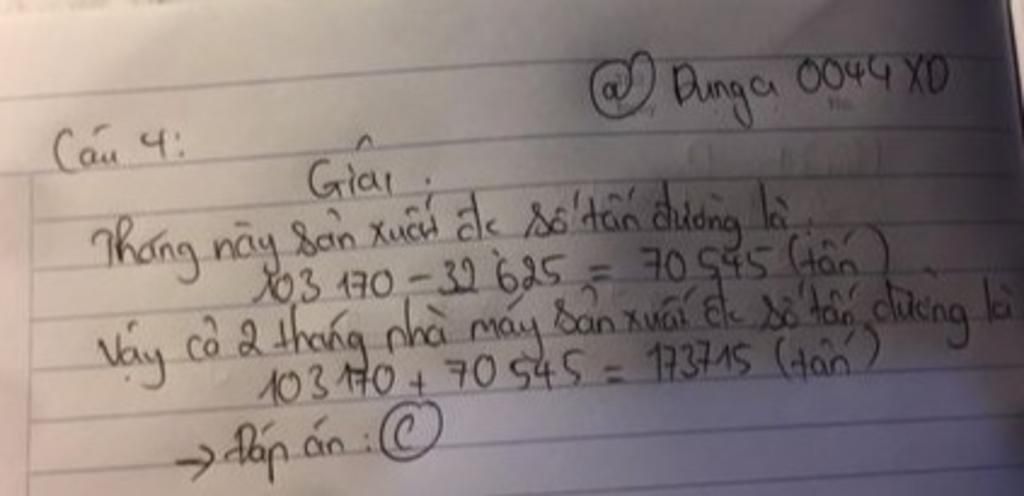 @ Dunga 0044 XD
Câu 4:
Giải.
Tháng này sản xuất đc số tấn đường là:
103 170 - 32 625 = 70 545 (tấn)
Vậy cả 2 tháng nhà máy sản xuất đc số tấn đường là
103 170 + 70 545 = 173715 (tấn)
→ Đáp án: C